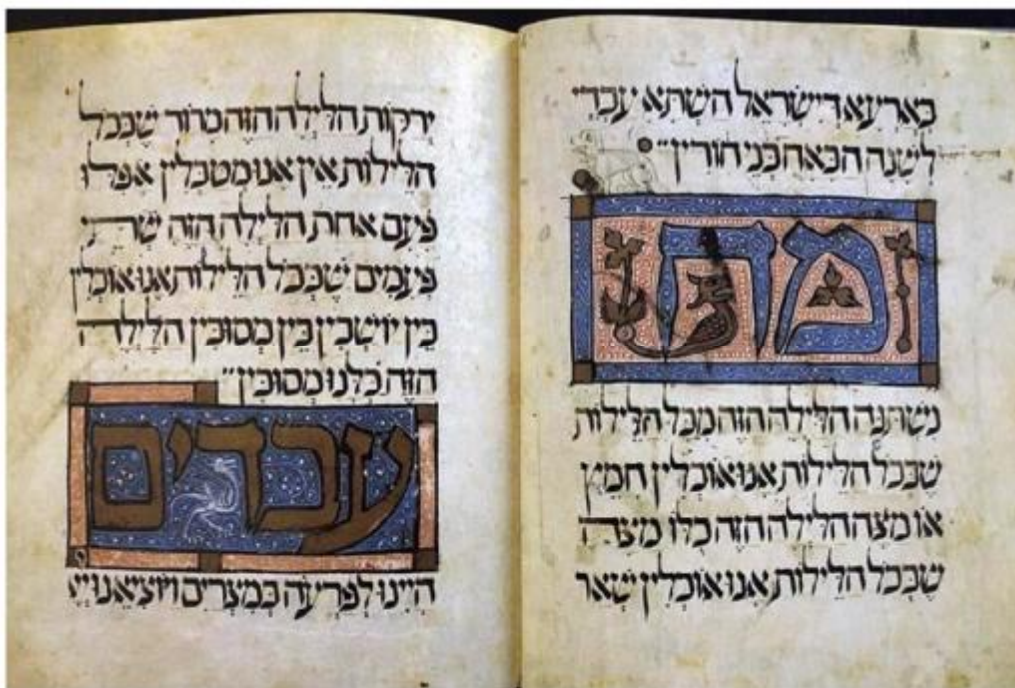 בארעא דישראל השתא עבדי
לשנה הבאה בני חורין״
מה
נשתנה הלילה הזה מכל הלילות
שבכל הלילות אנו אוכלין חמץ
או מצה הלילה הזה כלו מצה
שבכל הלילות אנו אוכלין שאר
ירקות הלילה הזה מרור שבכל
הלילות אין אנו מטבלין אפלו
פעם אחת הלילה הזה שתי
פעמים שבכל הלילות אנו אוכלין
בין יושבין בין מסובין הלילה
הזה כלנו מסובין״
עבדים
היינו לפרעה במצרים ויוציאנו ייי